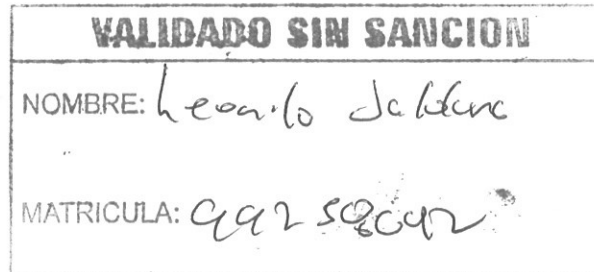 VALIDADO SIN SANCION
NOMBRE: Leonilo Saldana
MATRICULA: 99258042